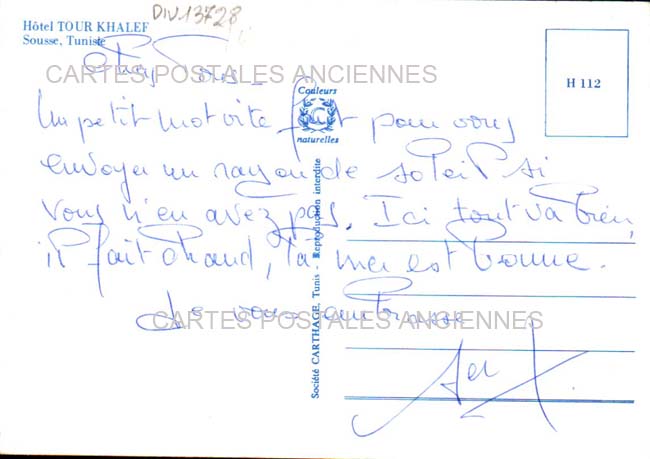 DIV13728
Hôtel TOUR KHALEF
Sousse, Tunisie
H 112
Chez vous -
CARTES POSTALES ANCIENNES
Couleurs
naturelles
Un petit mot vite fait pour vous
envoyer un rayon de soleil si
vous n'en avez pas. Ici tout va bien,
il fait chaud, la mer est bonne.
Je vous embrasse
CARTES POSTALES ANCIENNES
Société CARTHAGE, Tunis - Reproduction interdite